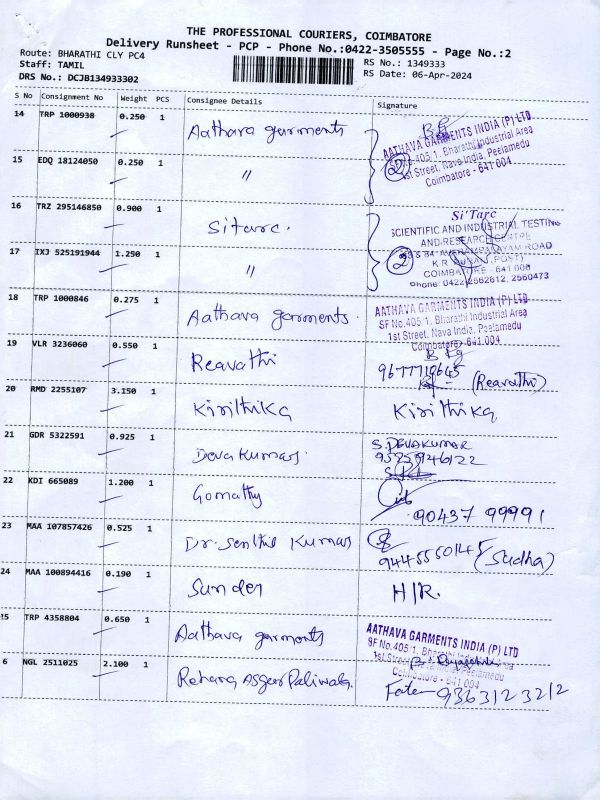 THE PROFESSIONAL COURIERS, COIMBATORE
Delivery Runsheet - PCP - Phone No.:0422-3505555 - Page No.:2
Route: BHARATHI CLY PC4
RS No.: 1349333
Staff: TAMIL
RS Date: 06-Apr-2024
DRS No.: DCJB134933302
S No Consignment No Weight PCS Consignee Details Signature
14 TRP 1000938 0.250 1 Aathava garments
AATHAVA GARMENTS INDIA (P) LTD
SF No.405/1, Bharathi Industrial Area
1st Street, Nava India, Peelamedu
Coimbatore - 641 004
2
15 EDQ 18124050 0.250 1 〃
16 TRZ 295146850 0.900 1 Sitarc.
Si'Tarc
SCIENTIFIC AND INDUSTRIAL TESTING
AND RESEARCH CENTRE
ROAD
COIMBATORE - 641 006
Phone: 0422 2562612, 2560473
2
17 IXJ 525191944 1.250 1 〃
18 TRP 1000846 0.275 1 Aathava garments.
AATHAVA GARMENTS INDIA (P) LTD
SF No.405/1, Bharathi Industrial Area
1st Street, Nava India, Peelamedu
Coimbatore - 641 004
19 VLR 3236060 0.550 1 Reavathi
(Reavathi)
20 RMD 2255107 3.150 1 Kirithika Kirithika
21 GDR 5322591 0.925 1 Devakumar.
S.DEVAKUMAR
22 KDI 665089 1.200 1 Gomathy
90437 99991
23 MAA 107857426 0.525 1 Dr. Senthil Kumar
(Sudha)
24 MAA 100894416 0.190 1 Sunder H/R.
25 TRP 4358804 0.650 1 Aathava garments
AATHAVA GARMENTS INDIA (P) LTD
SF No.405/1, Bharathi Industrial Area
1st Street, Peelamedu
Coimbatore - 641 004
6 NGL 2511025 2.100 1 Paliwala.
9363123212